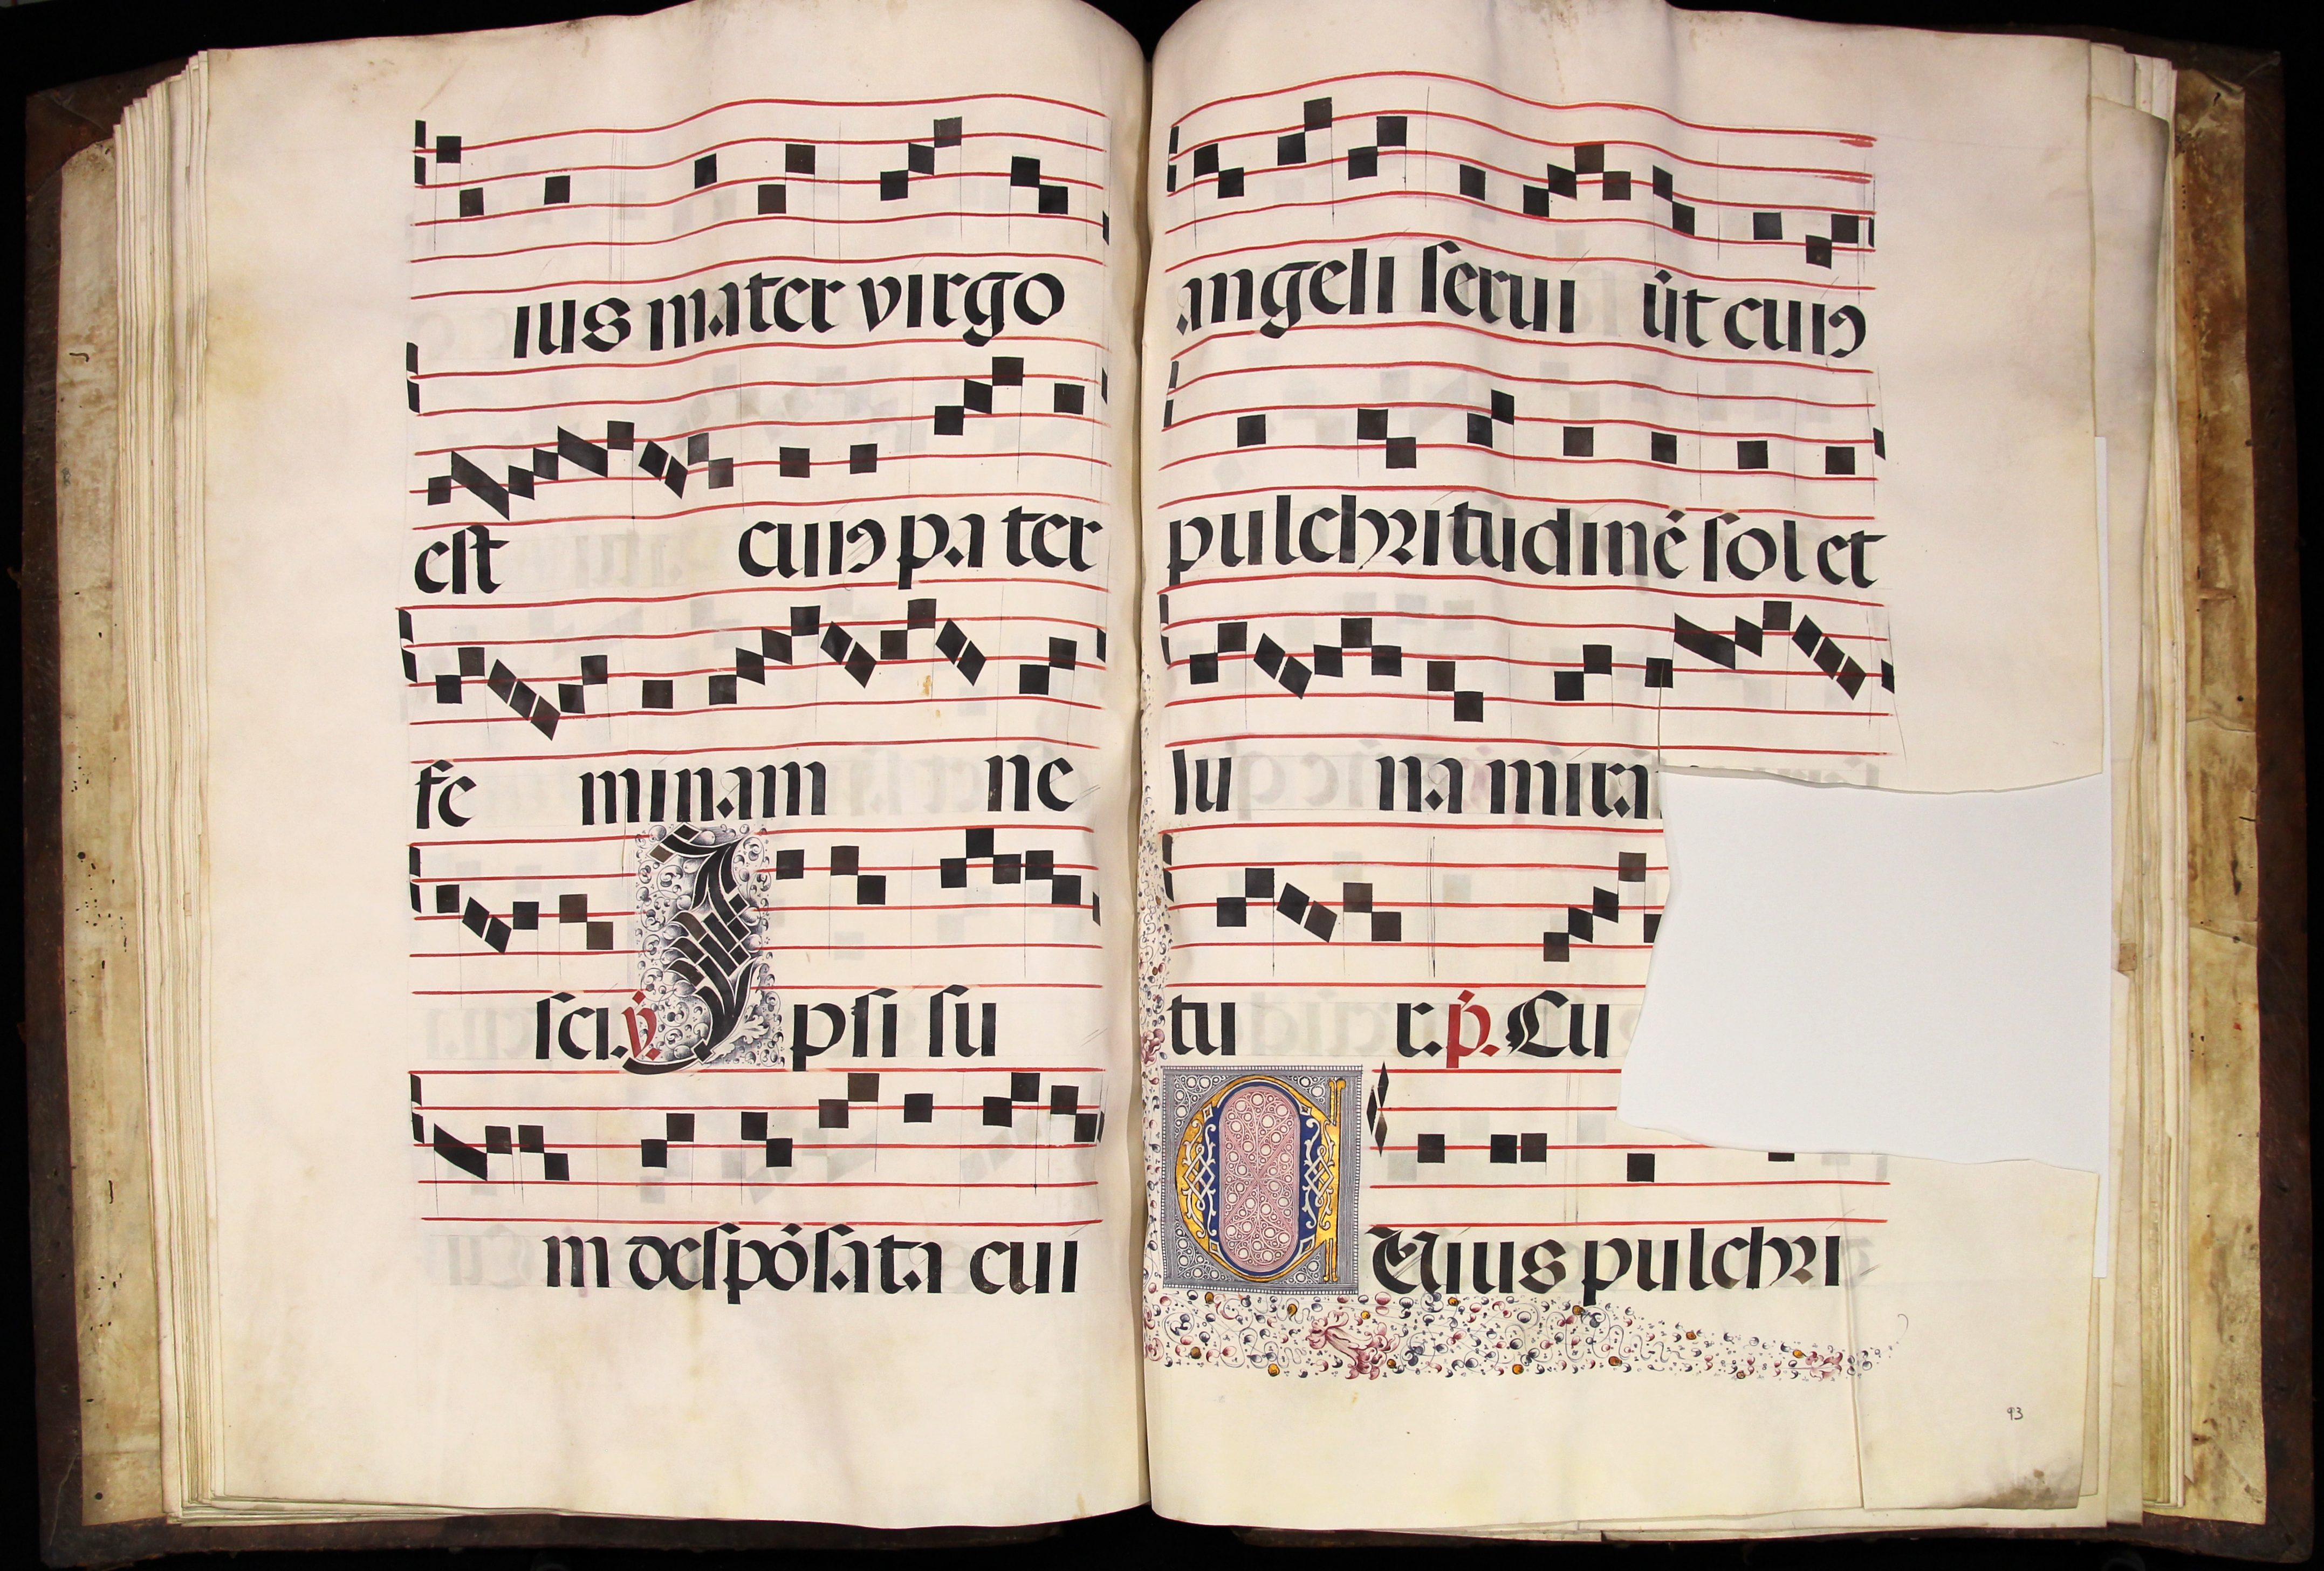 ius mater virgo
est cum pa ter
fe minam ne
sci. v. Ipsi su
m despósata cui
angeli serui út cuiꝰ
pulchritudinē sol et
lu na mira
tu r. p̄. Cu
CUius pulchri
93